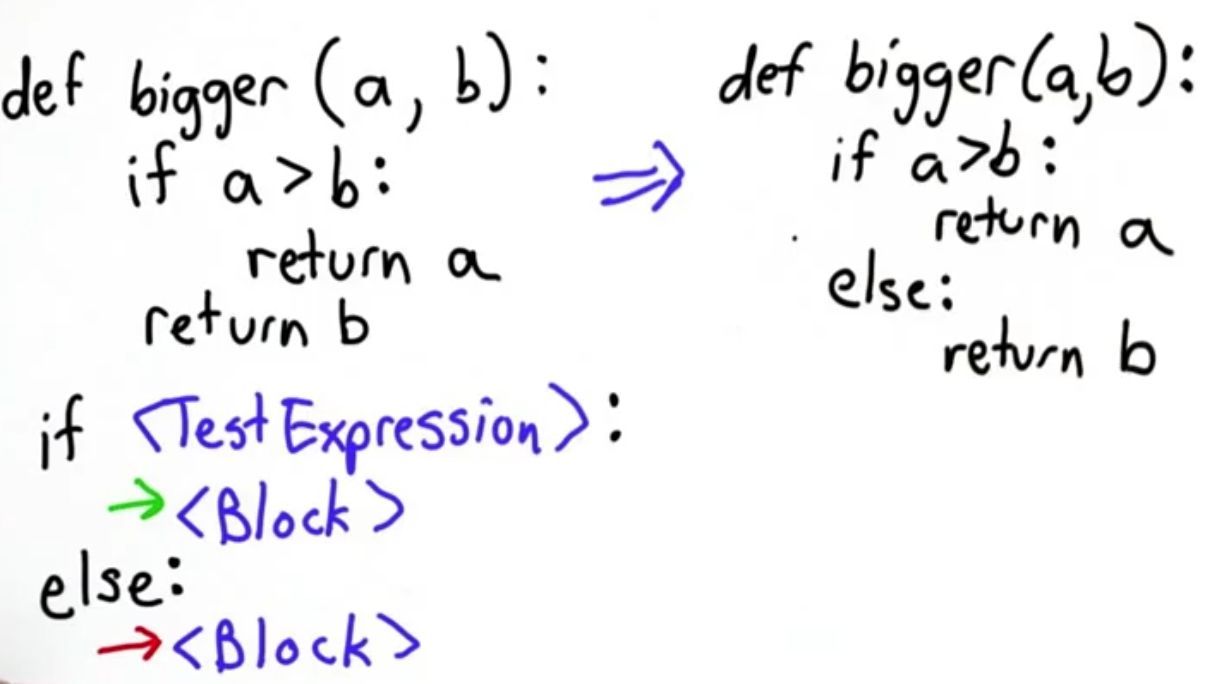 def bigger (a, b):
if a > b:
return a
return b
def bigger(a,b):
if a>b:
return a
else:
return b
if <TestExpression>:
<Block>
else:
<Block>